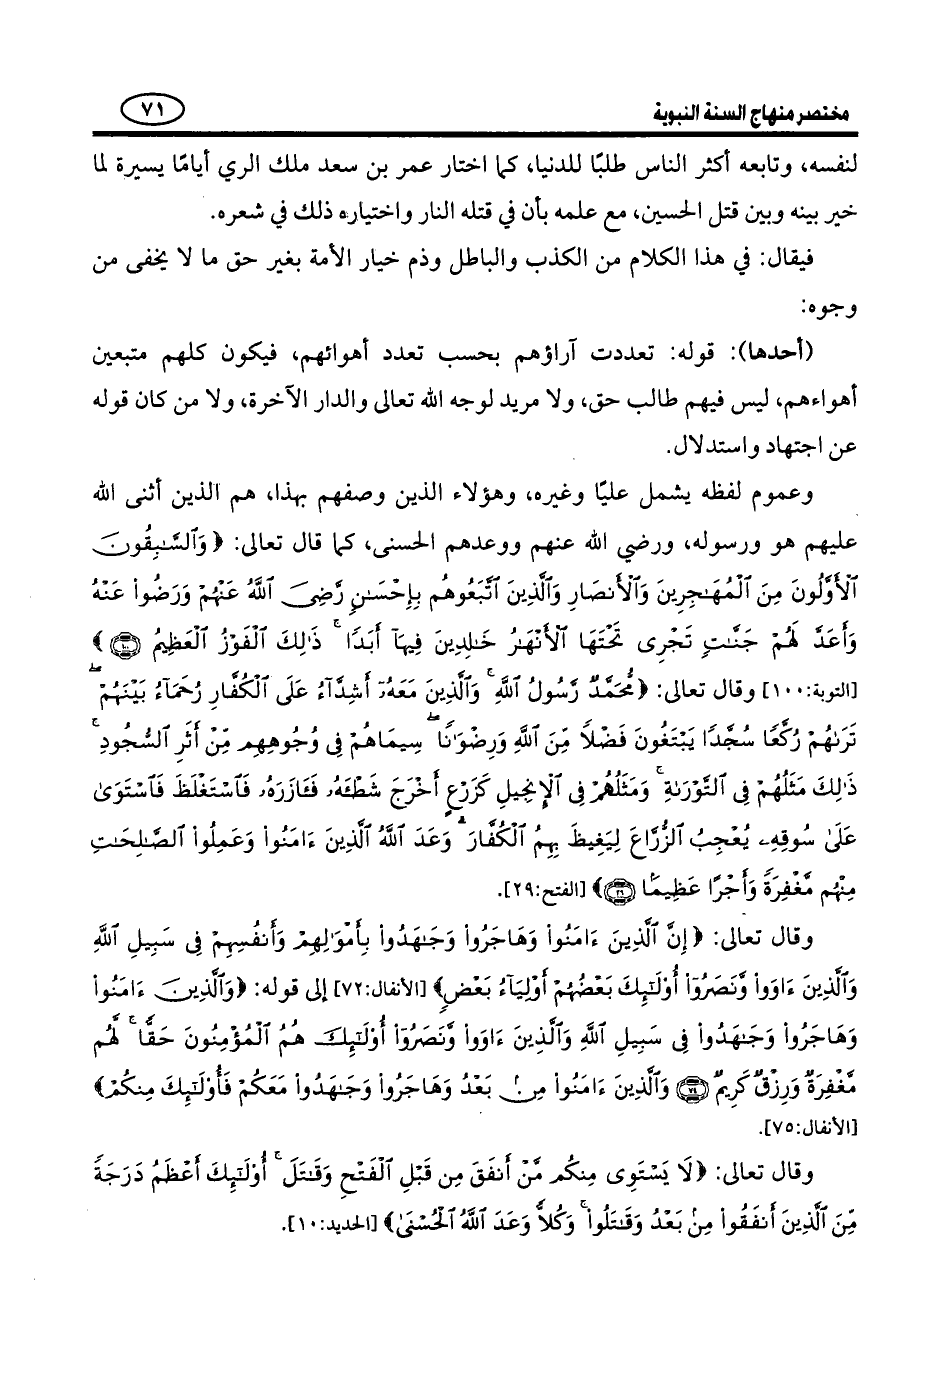 مختصر منهاج السنة النبوية
٧١
لنفسه، وتابعه أكثر الناس طلبًا للدنيا، كما اختار عمر بن سعد ملك الري أيامًا يسيرة لما
خير بينه وبين قتل الحسين، مع علمه بأن في قتله النار واختياره ذلك في شعره.
فيقال: في هذا الكلام من الكذب والباطل وذم خيار الأمة بغير حق ما لا يخفى من
وجوه:
(أحدها): قوله: تعددت آراؤهم بحسب تعدد أهوائهم، فيكون كلهم متبعين
أهواءهم، ليس فيهم طالب حق، ولا مريد لوجه الله تعالى والدار الآخرة، ولا من كان قوله
عن اجتهاد واستدلال.
وعموم لفظه يشمل عليًا وغيره، وهؤلاء الذين وصفهم بهذا، هم الذين أثنى الله
عليهم هو ورسوله، ورضي الله عنهم ووعدهم الحسنى، كما قال تعالى: ﴿وَٱلسَّٰبِقُونَ
ٱلْأَوَّلُونَ مِنَ ٱلْمُهَٰجِرِينَ وَٱلْأَنصَارِ وَٱلَّذِينَ ٱتَّبَعُوهُم بِإِحْسَٰنٍ رَّضِىَ ٱللَّهُ عَنْهُمْ وَرَضُوا۟ عَنْهُ
وَأَعَدَّ لَهُمْ جَنَّٰتٍ تَجْرِى تَحْتَهَا ٱلْأَنْهَٰرُ خَٰلِدِينَ فِيهَآ أَبَدًا ۚ ذَٰلِكَ ٱلْفَوْزُ ٱلْعَظِيمُ ۝١٠٠﴾
[التوبة:١٠٠] وقال تعالى: ﴿مُّحَمَّدٌ رَّسُولُ ٱللَّهِ ۚ وَٱلَّذِينَ مَعَهُۥٓ أَشِدَّآءُ عَلَى ٱلْكُفَّارِ رُحَمَآءُ بَيْنَهُمْ ۖ
تَرَىٰهُمْ رُكَّعًا سُجَّدًا يَبْتَغُونَ فَضْلًا مِّنَ ٱللَّهِ وَرِضْوَٰنًا ۖ سِيمَاهُمْ فِى وُجُوهِهِم مِّنْ أَثَرِ ٱلسُّجُودِ ۚ
ذَٰلِكَ مَثَلُهُمْ فِى ٱلتَّوْرَىٰةِ ۚ وَمَثَلُهُمْ فِى ٱلْإِنجِيلِ كَزَرْعٍ أَخْرَجَ شَطْـَٔهُۥ فَـَٔازَرَهُۥ فَٱسْتَغْلَظَ فَٱسْتَوَىٰ
عَلَىٰ سُوقِهِۦ يُعْجِبُ ٱلزُّرَّاعَ لِيَغِيظَ بِهِمُ ٱلْكُفَّارَ ۗ وَعَدَ ٱللَّهُ ٱلَّذِينَ ءَامَنُوا۟ وَعَمِلُوا۟ ٱلصَّٰلِحَٰتِ
مِنْهُم مَّغْفِرَةً وَأَجْرًا عَظِيمًۢا ۝٢٩﴾ [الفتح:٢٩].
وقال تعالى: ﴿إِنَّ ٱلَّذِينَ ءَامَنُوا۟ وَهَاجَرُوا۟ وَجَٰهَدُوا۟ بِأَمْوَٰلِهِمْ وَأَنفُسِهِمْ فِى سَبِيلِ ٱللَّهِ
وَٱلَّذِينَ ءَاوَوا۟ وَّنَصَرُوٓا۟ أُو۟لَٰٓئِكَ بَعْضُهُمْ أَوْلِيَآءُ بَعْضٍ﴾ [الأنفال:٧٢] إلى قوله: ﴿وَٱلَّذِينَ ءَامَنُوا۟
وَهَاجَرُوا۟ وَجَٰهَدُوا۟ فِى سَبِيلِ ٱللَّهِ وَٱلَّذِينَ ءَاوَوا۟ وَّنَصَرُوٓا۟ أُو۟لَٰٓئِكَ هُمُ ٱلْمُؤْمِنُونَ حَقًّا ۚ لَّهُم
مَّغْفِرَةٌ وَرِزْقٌ كَرِيمٌ ۝٧٤ وَٱلَّذِينَ ءَامَنُوا۟ مِنۢ بَعْدُ وَهَاجَرُوا۟ وَجَٰهَدُوا۟ مَعَكُمْ فَأُو۟لَٰٓئِكَ مِنكُمْ﴾
[الأنفال:٧٥].
وقال تعالى: ﴿لَا يَسْتَوِى مِنكُم مَّنْ أَنفَقَ مِن قَبْلِ ٱلْفَتْحِ وَقَٰتَلَ ۚ أُو۟لَٰٓئِكَ أَعْظَمُ دَرَجَةً
مِّنَ ٱلَّذِينَ أَنفَقُوا۟ مِنۢ بَعْدُ وَقَٰتَلُوا۟ ۚ وَكُلًّا وَعَدَ ٱللَّهُ ٱلْحُسْنَىٰ﴾ [الحديد:١٠].